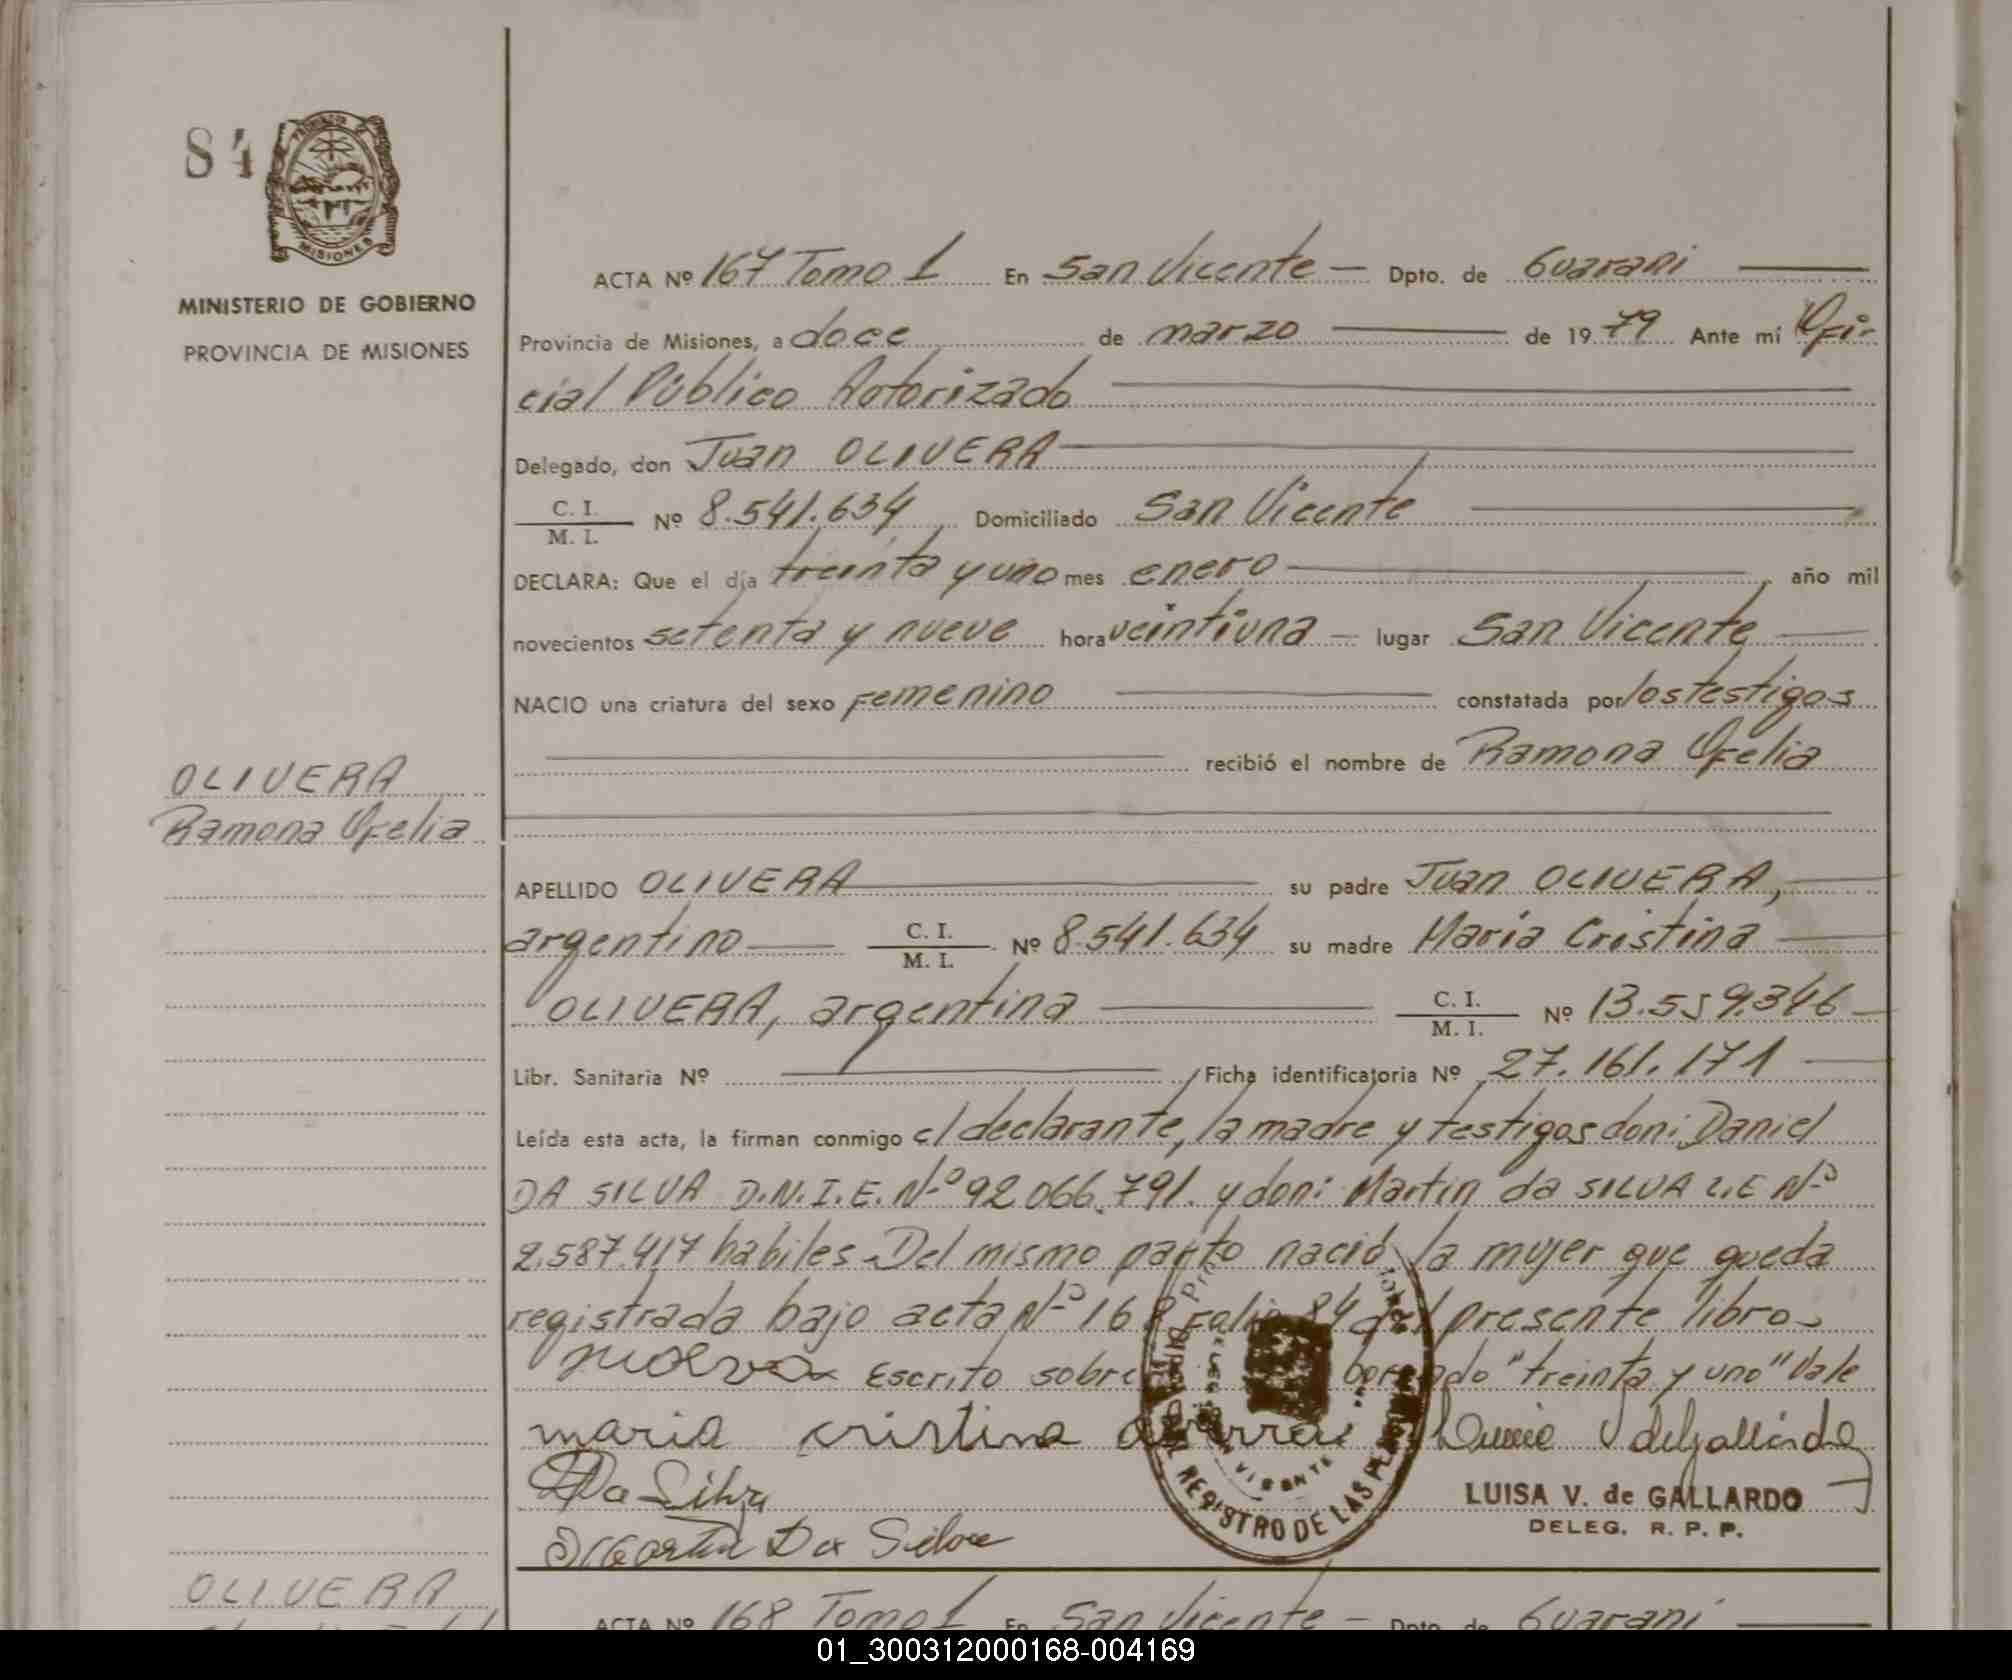 84
MISIONES
MINISTERIO DE GOBIERNO
PROVINCIA DE MISIONES
ACTA Nº 167 Tomo 1 En San Vicente — Dpto. de Guarani
Provincia de Misiones, a doce de marzo de 1979 Ante mí Ofi-
cial Público Autorizado
Delegado, don Juan OLIVERA
C. I.
M. I. Nº 8.541.634 Domiciliado San Vicente
DECLARA: Que el día treinta y uno mes enero, año mil
novecientos setenta y nueve hora veintiuna — lugar San Vicente
NACIO una criatura del sexo Femenino constatada por los testigos
recibió el nombre de Ramona Ofelia
OLIVERA
Ramona Ofelia
APELLIDO OLIVERA su padre Juan OLIVERA,
argentino C. I. M. I. Nº 8.541.634 su madre María Cristina
OLIVERA, argentina C. I. M. I. Nº 13.559.346
Libr. Sanitaria Nº Ficha identificatoria Nº 27.161.171
Leída esta acta, la firman conmigo el declarante, la madre y testigos don: Daniel
DA SILVA D.N.I.E. Nº 92.066.791. y don: Martin da SILVA L.E Nº
2.587.417 habiles. Del mismo parto nació la mujer que queda
registrada bajo acta Nº 168 Folio 84 del presente libro.
Escrito sobre borrado "treinta y uno" Vale
maria cristina
LUISA V. de GALLARDO
DELEG. R. P. P.
Da Silva
Martin Da Silva
REGISTRO DE LAS
OLIVERA
ACTA Nº 168 Tomo 1 En San Vicente — Dpto. de Guarani
01_300312000168-004169